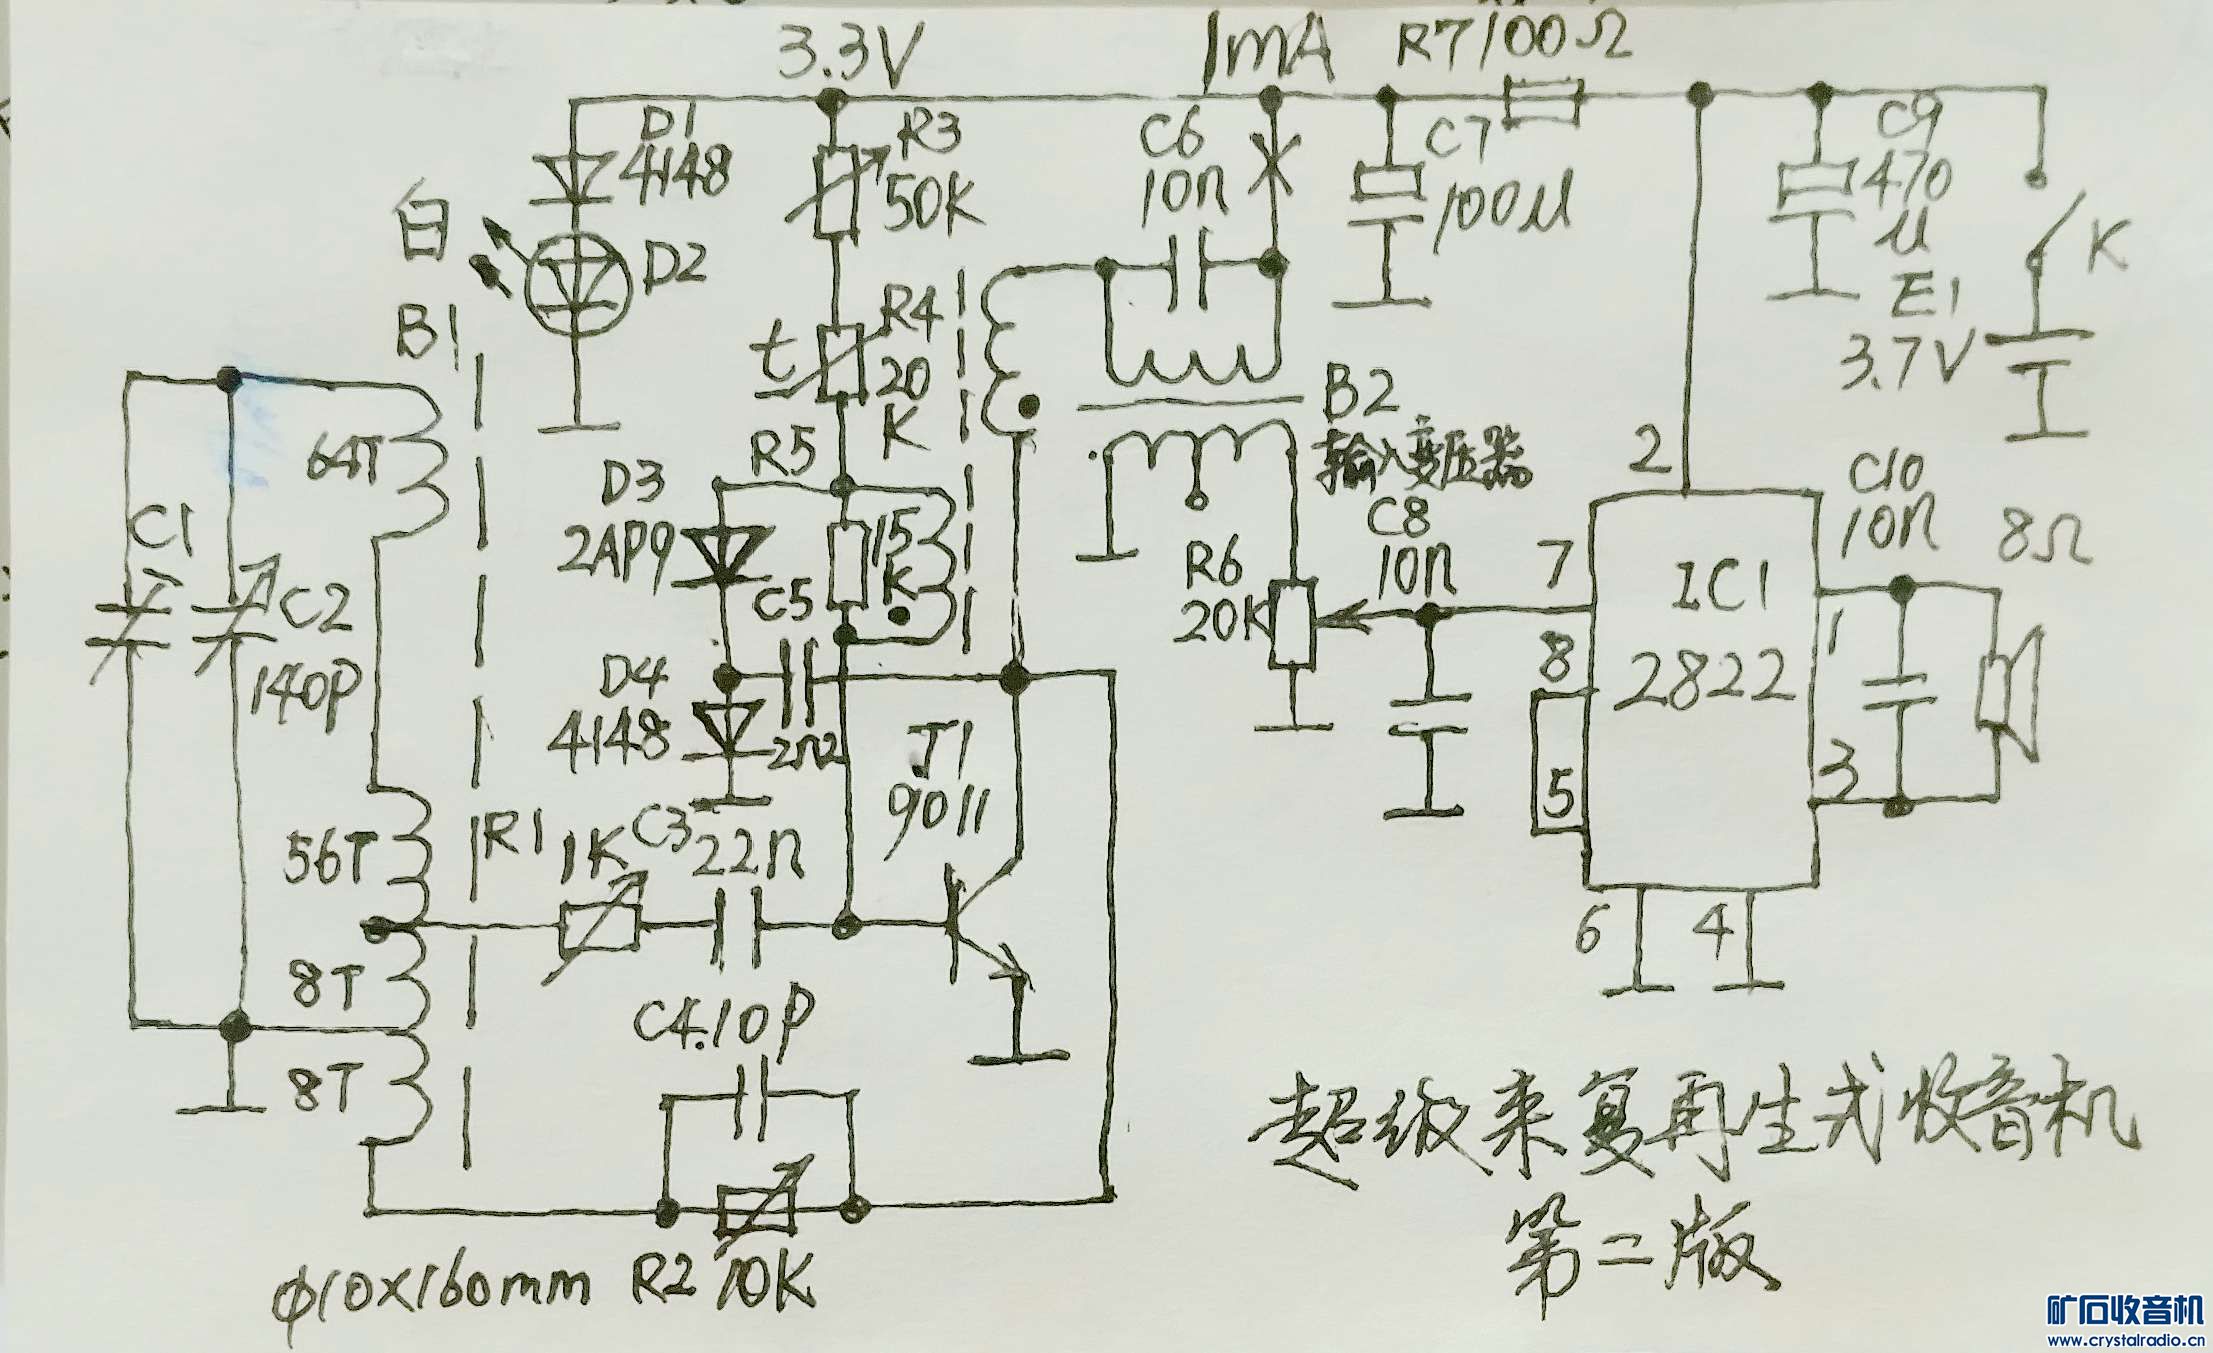 3.3V
1mA
R7 100Ω
D1
4148
R3
50K
C6
10n
C7
100μ
C9
470
μ
白
D2
K
B1
t
R4
20
K
E1
3.7V
B2
输入变压器
64T
R5
D3
2AP9
15
K
2
C8
10n
C10
10n
8Ω
C1
C2
140P
C5
R6
20K
7
IC1
2822
1
8
D4
4148
2n2
J1
9011
5
3
56T
R1
1K
C3
22n
6
4
8T
C4.10P
8T
超级来复再生式收音机
第二版
φ10×160mm
R2 10K
矿石收音机
www.crystalradio.cn